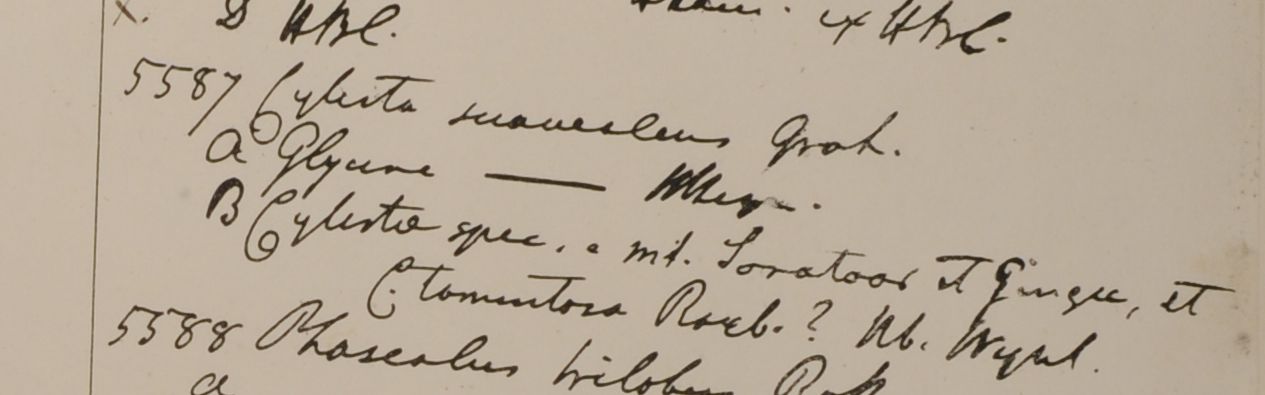 D HBC. ex HBC.
5587 Cylista suaveolens Grah.
a Glycine —— Hb Heyn.
B Cylistae spec. e mt. Soratoor et Gingee, et
C. tomentosa Roxb.? Hb. Wight.
5588 Phaseolus trilobus
a